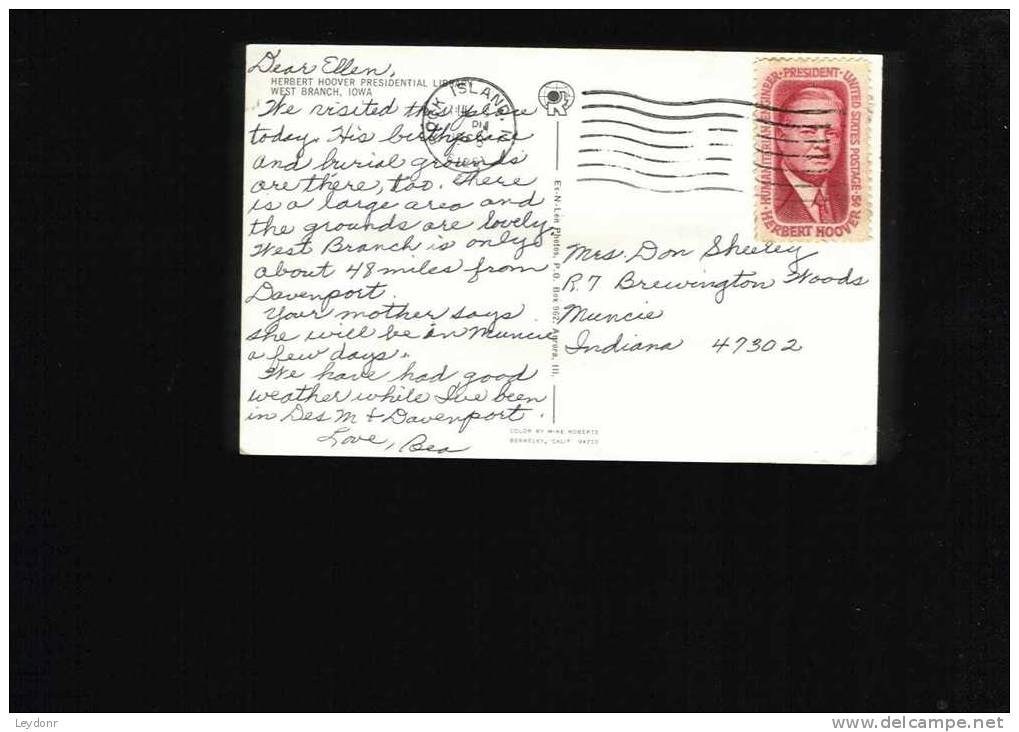 Dear Ellen,
HERBERT HOOVER PRESIDENTIAL LIBRARY
WEST BRANCH, IOWA
We visited this place
today. His birthplace
and burial grounds
are there, too. There
is a large area and
the grounds are lovely.
West Branch is only
about 48 miles from
Davenport.
Your mother says
she will be in Muncie
a few days.
We have had good
weather while I've been
in Des M & Davenport.
Love, Bea
ROCK ISLAND,
PM
Ev-N-Len Photos, P.O. Box 962, Aurora, Ill.
COLOR BY MIKE ROBERTS
BERKELEY, CALIF 94710
HUMANITARIAN·ENGINEER·PRESIDENT·UNITED STATES POSTAGE·5¢
HERBERT HOOVER
Mrs. Don Sheeley
R.7 Brewington Woods
Muncie
Indiana 47302
Leydonr
www.delcampe.net